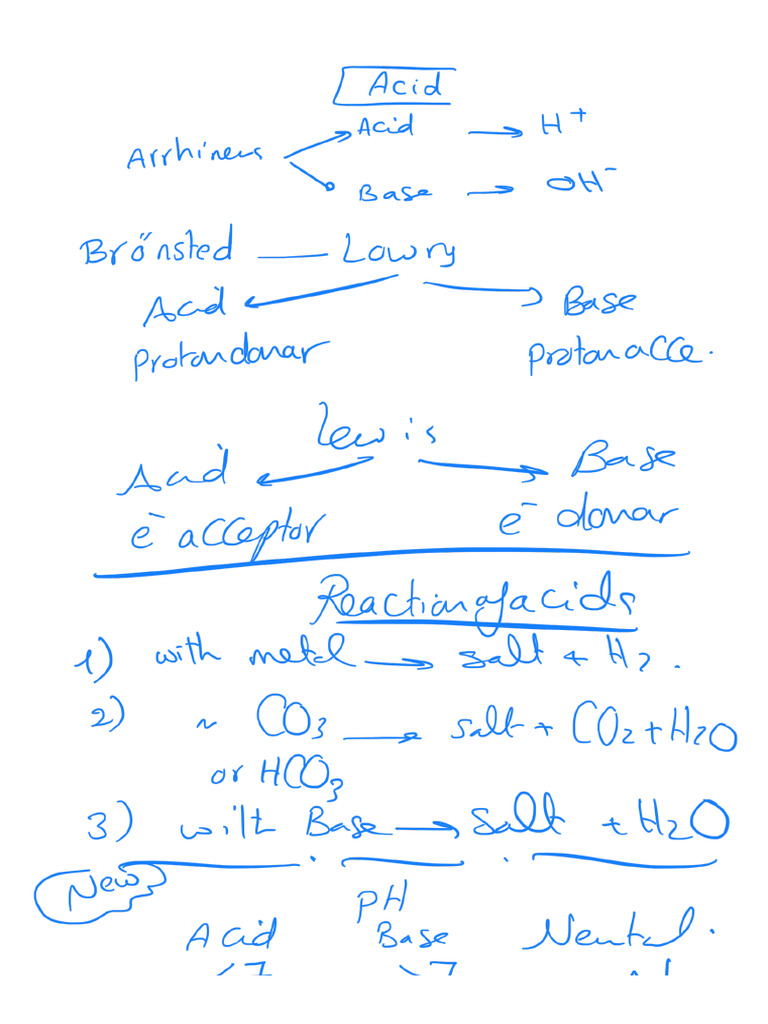 Acid
Arrhineus Acid → H+
Base → OH-
Brönsted — Lowry
Acid Base
Protondonar protonacce.
Lewis
Acid Base
e- acceptor e- donar
Reactionofacids
1) with metal → salt + H2.
2) ~ CO3 → salt + CO2 + H2O
or HCO3
3) with Base → salt + H2O
New
PH
Acid Base Neutal.